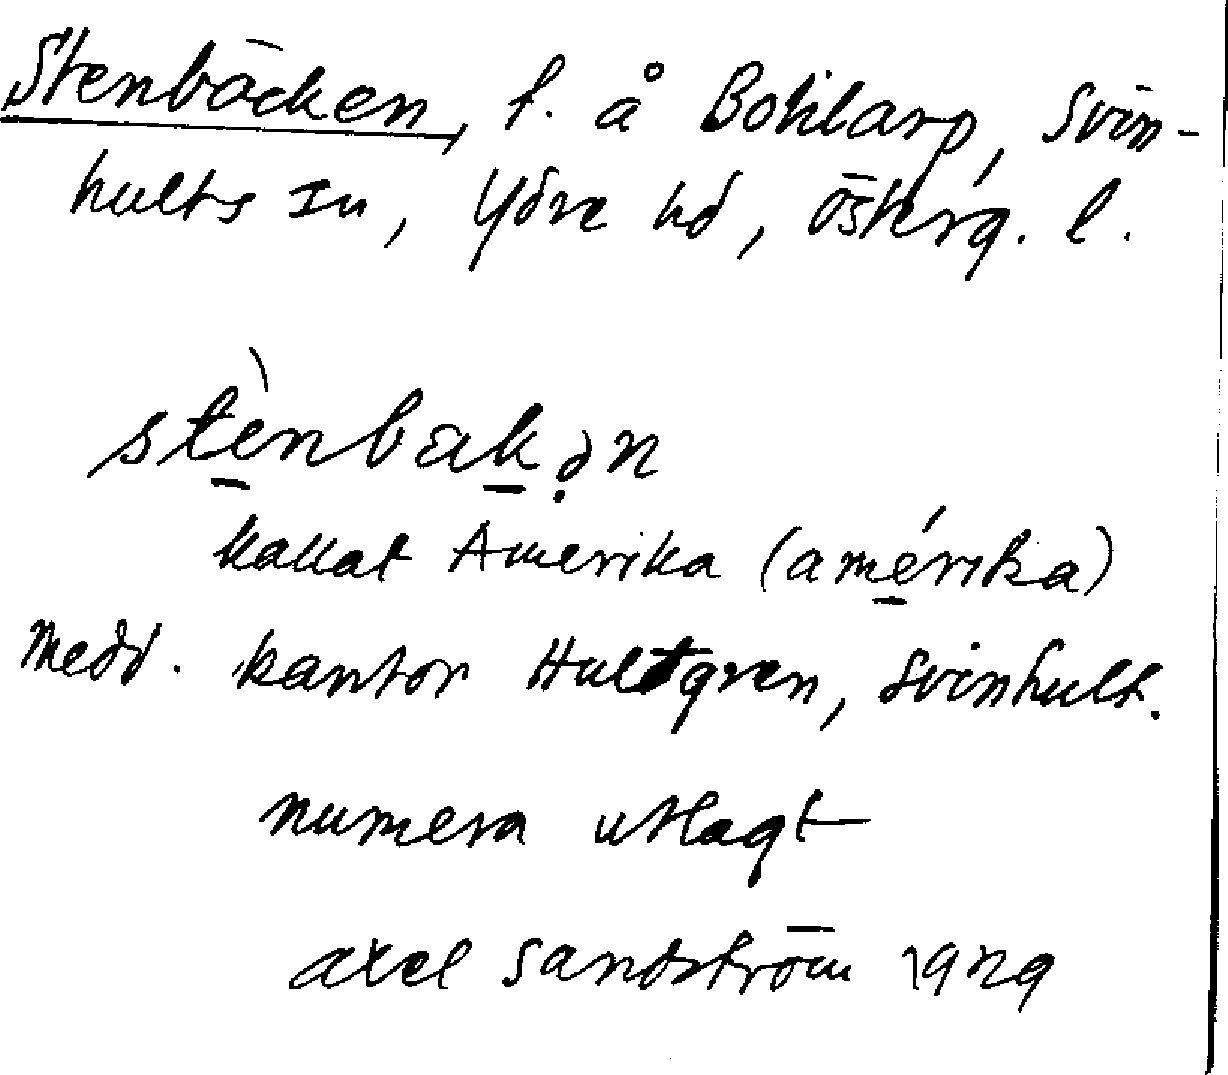 Stenbäcken, t. å Bohlarp, Svin-
hults sn, Ydre hd, Österg. l.
stènbäk.ən
kallat Amerika (amérika)
Medd. kantor Hultgren, Svinhult.
numera utlagt
Axel Sandström 1929